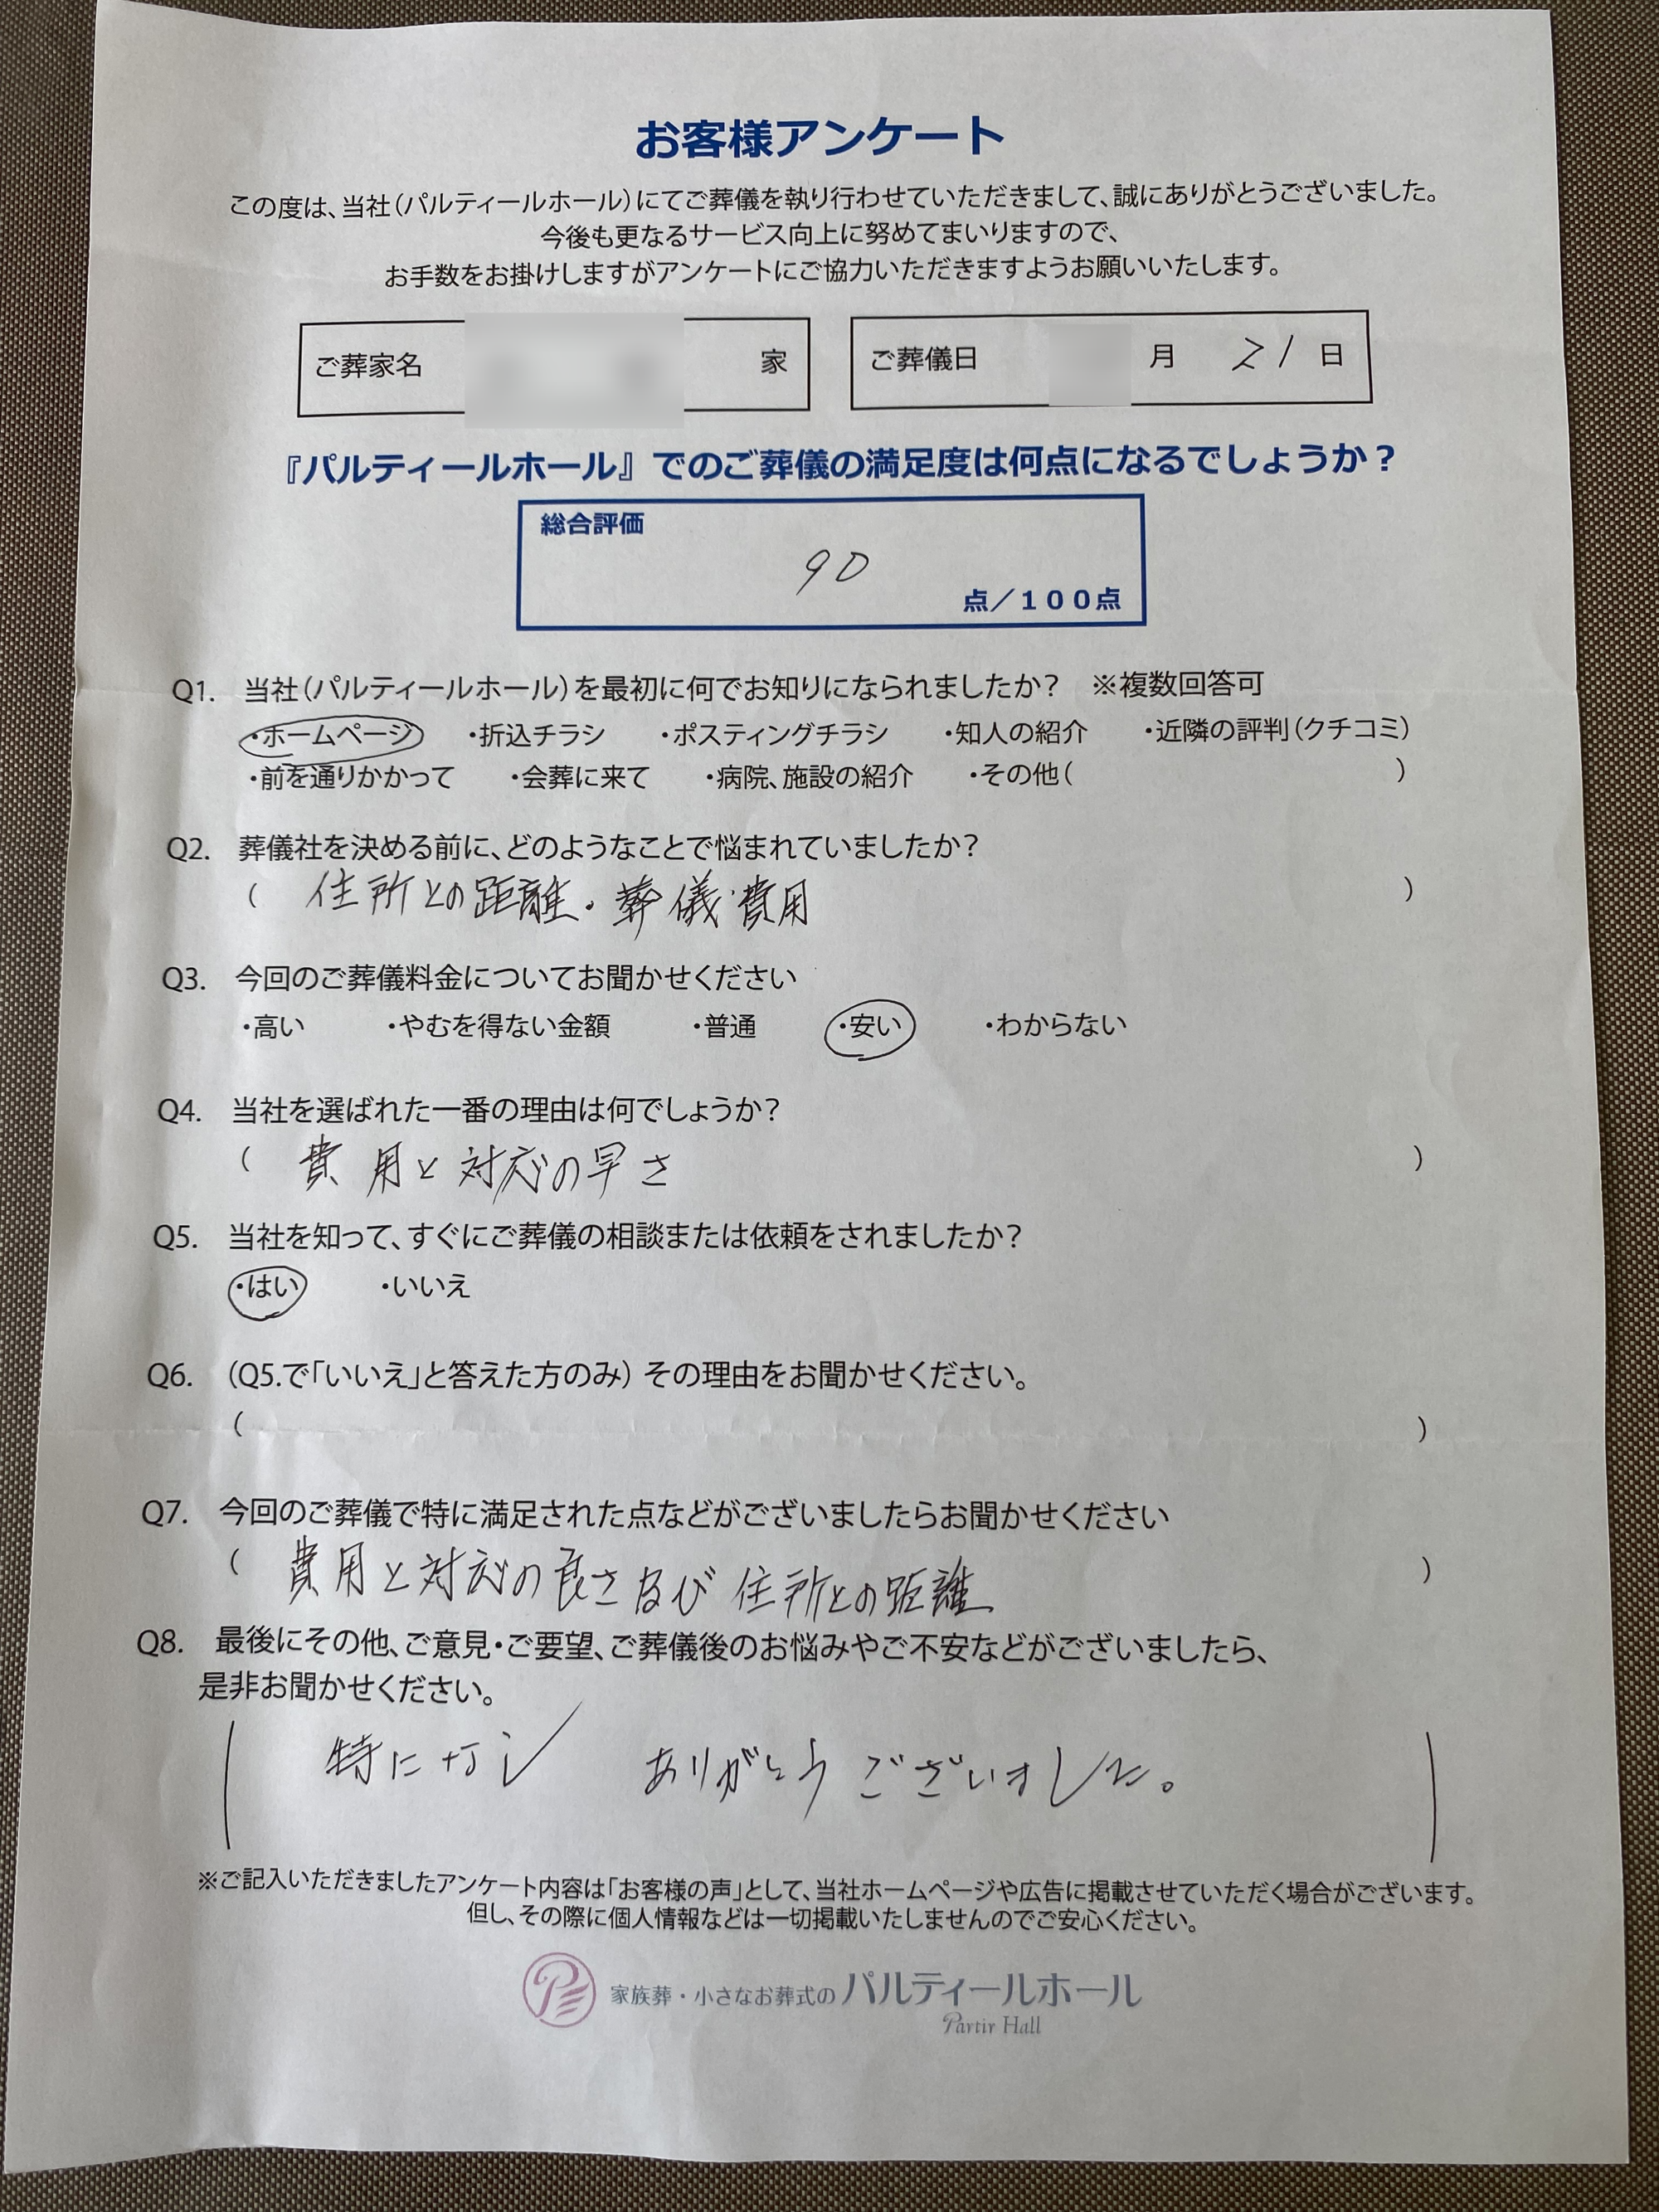 お客様アンケート
この度は、当社(パルティールホール)にてご葬儀を執り行わせていただきまして、誠にありがとうございました。
今後も更なるサービス向上に努めてまいりますので、
お手数をお掛けしますがアンケートにご協力いただきますようお願いいたします。
ご葬家名 家 ご葬儀日 月 21 日
『パルティールホール』でのご葬儀の満足度は何点になるでしょうか？
総合評価
90
点／100点
Q1. 当社(パルティールホール)を最初に何でお知りになられましたか？ ※複数回答可
・ホームページ ・折込チラシ ・ポスティングチラシ ・知人の紹介 ・近隣の評判(クチコミ)
・前を通りかかって ・会葬に来て ・病院、施設の紹介 ・その他( )
Q2. 葬儀社を決める前に、どのようなことで悩まれていましたか？
( 住所との距離・葬儀費用 )
Q3. 今回のご葬儀料金についてお聞かせください
・高い ・やむを得ない金額 ・普通 ・安い ・わからない
Q4. 当社を選ばれた一番の理由は何でしょうか？
( 費用と対応の早さ )
Q5. 当社を知って、すぐにご葬儀の相談または依頼をされましたか？
・はい ・いいえ
Q6. (Q5.で「いいえ」と答えた方のみ) その理由をお聞かせください。
( )
Q7. 今回のご葬儀で特に満足された点などがございましたらお聞かせください
( 費用と対応の良さ及び住所との距離 )
Q8. 最後にその他、ご意見・ご要望、ご葬儀後のお悩みやご不安などがございましたら、
是非お聞かせください。
( 特にナシ ありがとうございました。 )
※ご記入いただきましたアンケート内容は「お客様の声」として、当社ホームページや広告に掲載させていただく場合がございます。
但し、その際に個人情報などは一切掲載いたしませんのでご安心ください。
家族葬・小さなお葬式のパルティールホール
Partir Hall